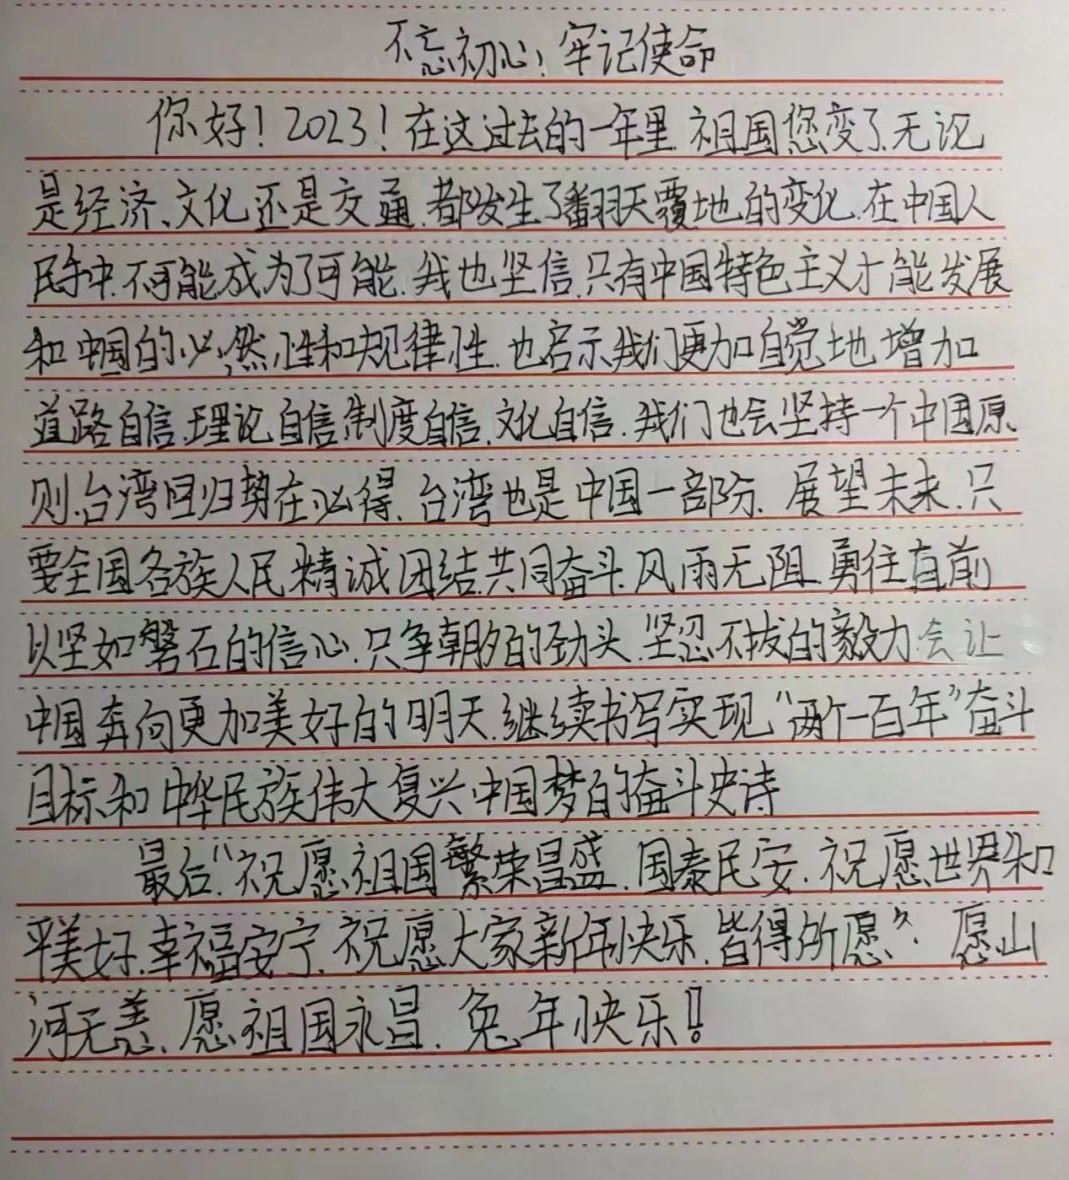 不忘初心，牢记使命
你好！2023！在这过去的一年里.祖国您变了.无论
是经济、文化还是交通.都发生了翻天覆地的变化.在中国人
民手中.不可能成为了可能.我也坚信.只有中国特色主义才能发展
和中国的必然性和规律性.也启示我们更加自觉地增加
道路自信.理论自信.制度自信.文化自信.我们也会坚持一个中国原
则.台湾回归势在必得.台湾也是中国一部分.展望未来.只
要全国各族人民精诚团结共同奋斗.风雨无阻.勇往直前
以坚如磐石的信心.只争朝夕的劲头.坚忍不拔的毅力.会让
中国奔向更加美好的明天.继续书写实现“两个一百年”奋斗
目标和中华民族伟大复兴中国梦的奋斗史诗
最后.“祝愿祖国繁荣昌盛.国泰民安.祝愿世界和
平美好.幸福安宁.祝愿大家新年快乐.皆得所愿”.愿山
河无恙.愿祖国永昌.兔年快乐！